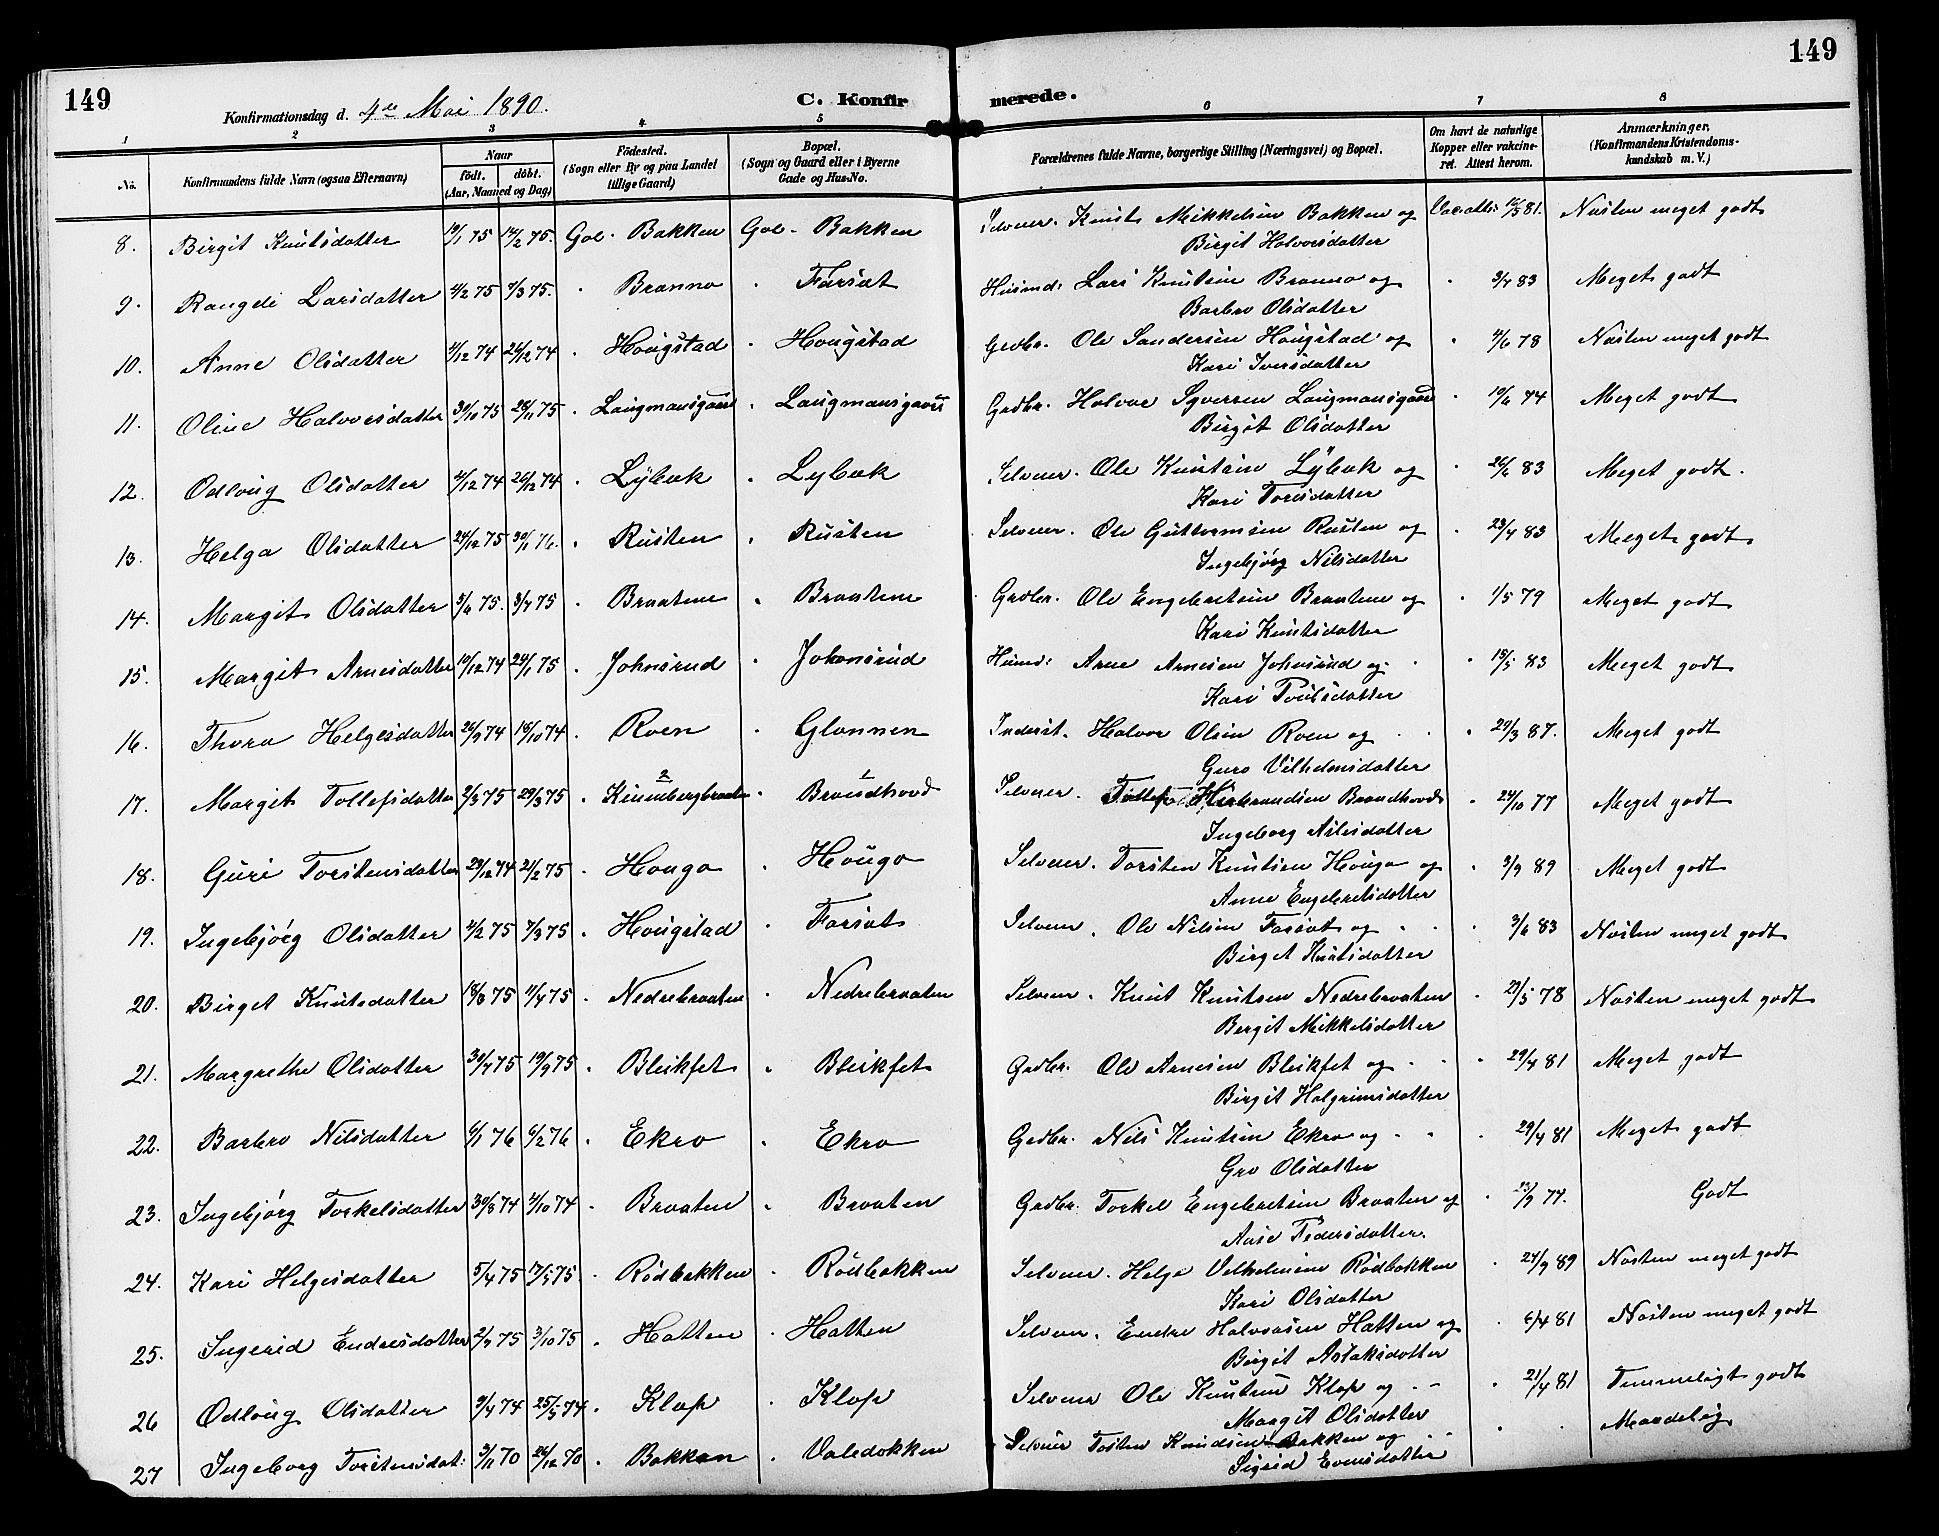 149
149
Konfirmationsdag d. 4de Mai 1890.
C. Konfirmerede.
1 2 3 4 5 6 7 8
No. Konfirmandens fulde Navn (ogsaa Efternavn) Naar født. døbt. (Aar, Maaned og Dag) Födested. (Sogn eller By og paa Landet tillige Gaard) Bopæl. (Sogn og Gaard eller i Byerne Gade og Hus-No. Forældrenes fulde Navne, borgerlige Stilling (Næringsvei) og Bopæl. Om havt de naturlige Kopper eller vakcineret. Attest herom. Anmærkninger. (Konfirmandens Kristendomskundskab m. V.)
8. Birgit Knutsdatter 19/1 75 14/2 75. Gol - Bakken Gol - Bakken Selveier. Knut Mikkelsen Bakken og Vac.att: 12/5 81. Næsten meget godt
Birgit Halvorsdatter
9. Rangdi Larsdatter 4/2 75 7/3 75. " Branno " Farsæt Husmd: Lars Knutsen Branno og " 3/7 83 Meget godt
Barbro Olsdatter
10. Anne Olsdatter 4/12 74 26/12 74 " Hougstad " Hougstad Grdbr. Ole Sandersen Hougstad og " 4/6 78 Næsten meget godt
Kari Iversdatter
11. Oline Halvorsdatter 30/10 75 28/11 75 " Laugmansgaard " Laugmansgaard Grdbr. Halvor Syversen Laugmansgaard " 19/6 74 Meget godt
Birgit Olsdatter
12. Odloug Olsdatter 4/12 74 26/12 74 " Lybæk " Lybæk Selveier. Ole Knutsen Lybæk og " 26/6 83 Meget godt.
Kari Toresdatter
13. Helga Olsdatter 24/12 75 30/1 76. " Rusten " Rusten Selveier. Ole Guttormsen Rusten og " 23/4 83 Meget godt
Ingebjørg Nilsdatter
14. Margit Olsdatter 5/6 75. 3/7 75 " Braatene " Braatene Grdbr. Ole Engebretsen Braatene og " 1/5 79 Meget godt
Kari Knutsdatter
15. Margit Arnesdatter 19/12 74 24/1 75 " Johnsrud " Johnsrud Husmd: Arne Arnesen Johnsrud og " 15/5 83 Meget godt
Kari Poulsdatter
16. Thora Helgesdatter 26/9 74 18/10 74 " Roen " Glonnen Inderst. Halvor Olsen Roen og " 29/3 87. Meget godt
Guro Vilhelmsdatter
17. Margit Tollefsdatter 2/3 75 29/3 75 " Kinnbergbraaten " Brandhovd Selveier. Tollef Herbrandsen Brandhovd " 24/10 77 Meget godt
Ingeborg Aslesdatter
18. Guri Torstensdatter 29/12 74 21/2 75 " Houga " Houga Selveier. Torsten Knutsen Houga og " 3/9 89 Meget godt
Anne Engebretsdatter
19. Ingebjørg Olsdatter 2/2 75 7/3 75 " Hougstad " Farsæt Selveier. Ole Nilsen Farsæt og " 3/6 83 Næsten meget godt
Birget Knutsdatter
20. Birget Knutsdatter 18/3 75 11/4 75 " Nedrebraaten " Nedrebraaten Selveier. Knut Knutsen Nedrebraaten " 21/5 78 Næsten meget godt
Bergit Mikkelsdatter
21. Margrethe Olsdatter 30/7 75 19/9 75 " Bleikfet " Bleikfet Grdbr. Ole Arnesen Bleikfet og " 29/4 81 Meget godt
Birgit Halgrimsdatter
22. Barbro Nilsdatter 6/1 76 6/2 76 " Ekro " Ekro Grdbr. Nils Knutsen Ekro og " 29/4 81 Meget godt
Gro Olsdatter
23. Ingebjørg Torkelsdatter 30/8 74 4/10 74 " Braaten " Braaten Grdbr. Torkel Engebretsen Braaten og " 13/9 77. Godt
Aase Pedersdatter.
24. Kari Helgesdatter 5/4 75 17/5 75 " Rødbakken " Rødbakken Selveier. Helge Vilhelmsen Rødbakken " 24/9 89 Næsten meget godt
Kari Olsdatter
25. Ingerid Endresdatter 2/9 75 3/10 75 " Hatten " Hatten Selveier. Endre Halvorsen Hatten og " 6/4 81 Næsten meget godt
Birgit Aslaksdatter
26 Odloug Olsdatter 9/4 74 25/5 74 " Klop " Klop Selveier Ole Knutsen Klop og " 21/4 81 Temmeligt godt
Margit Olsdatter
27 Ingeborg Torstensdat: 3/11 70 26/12 70 " Bakken " Valedokken Selveier Tosten Knudsen Bakken og " Maadelig
Sigrid Evensdatter